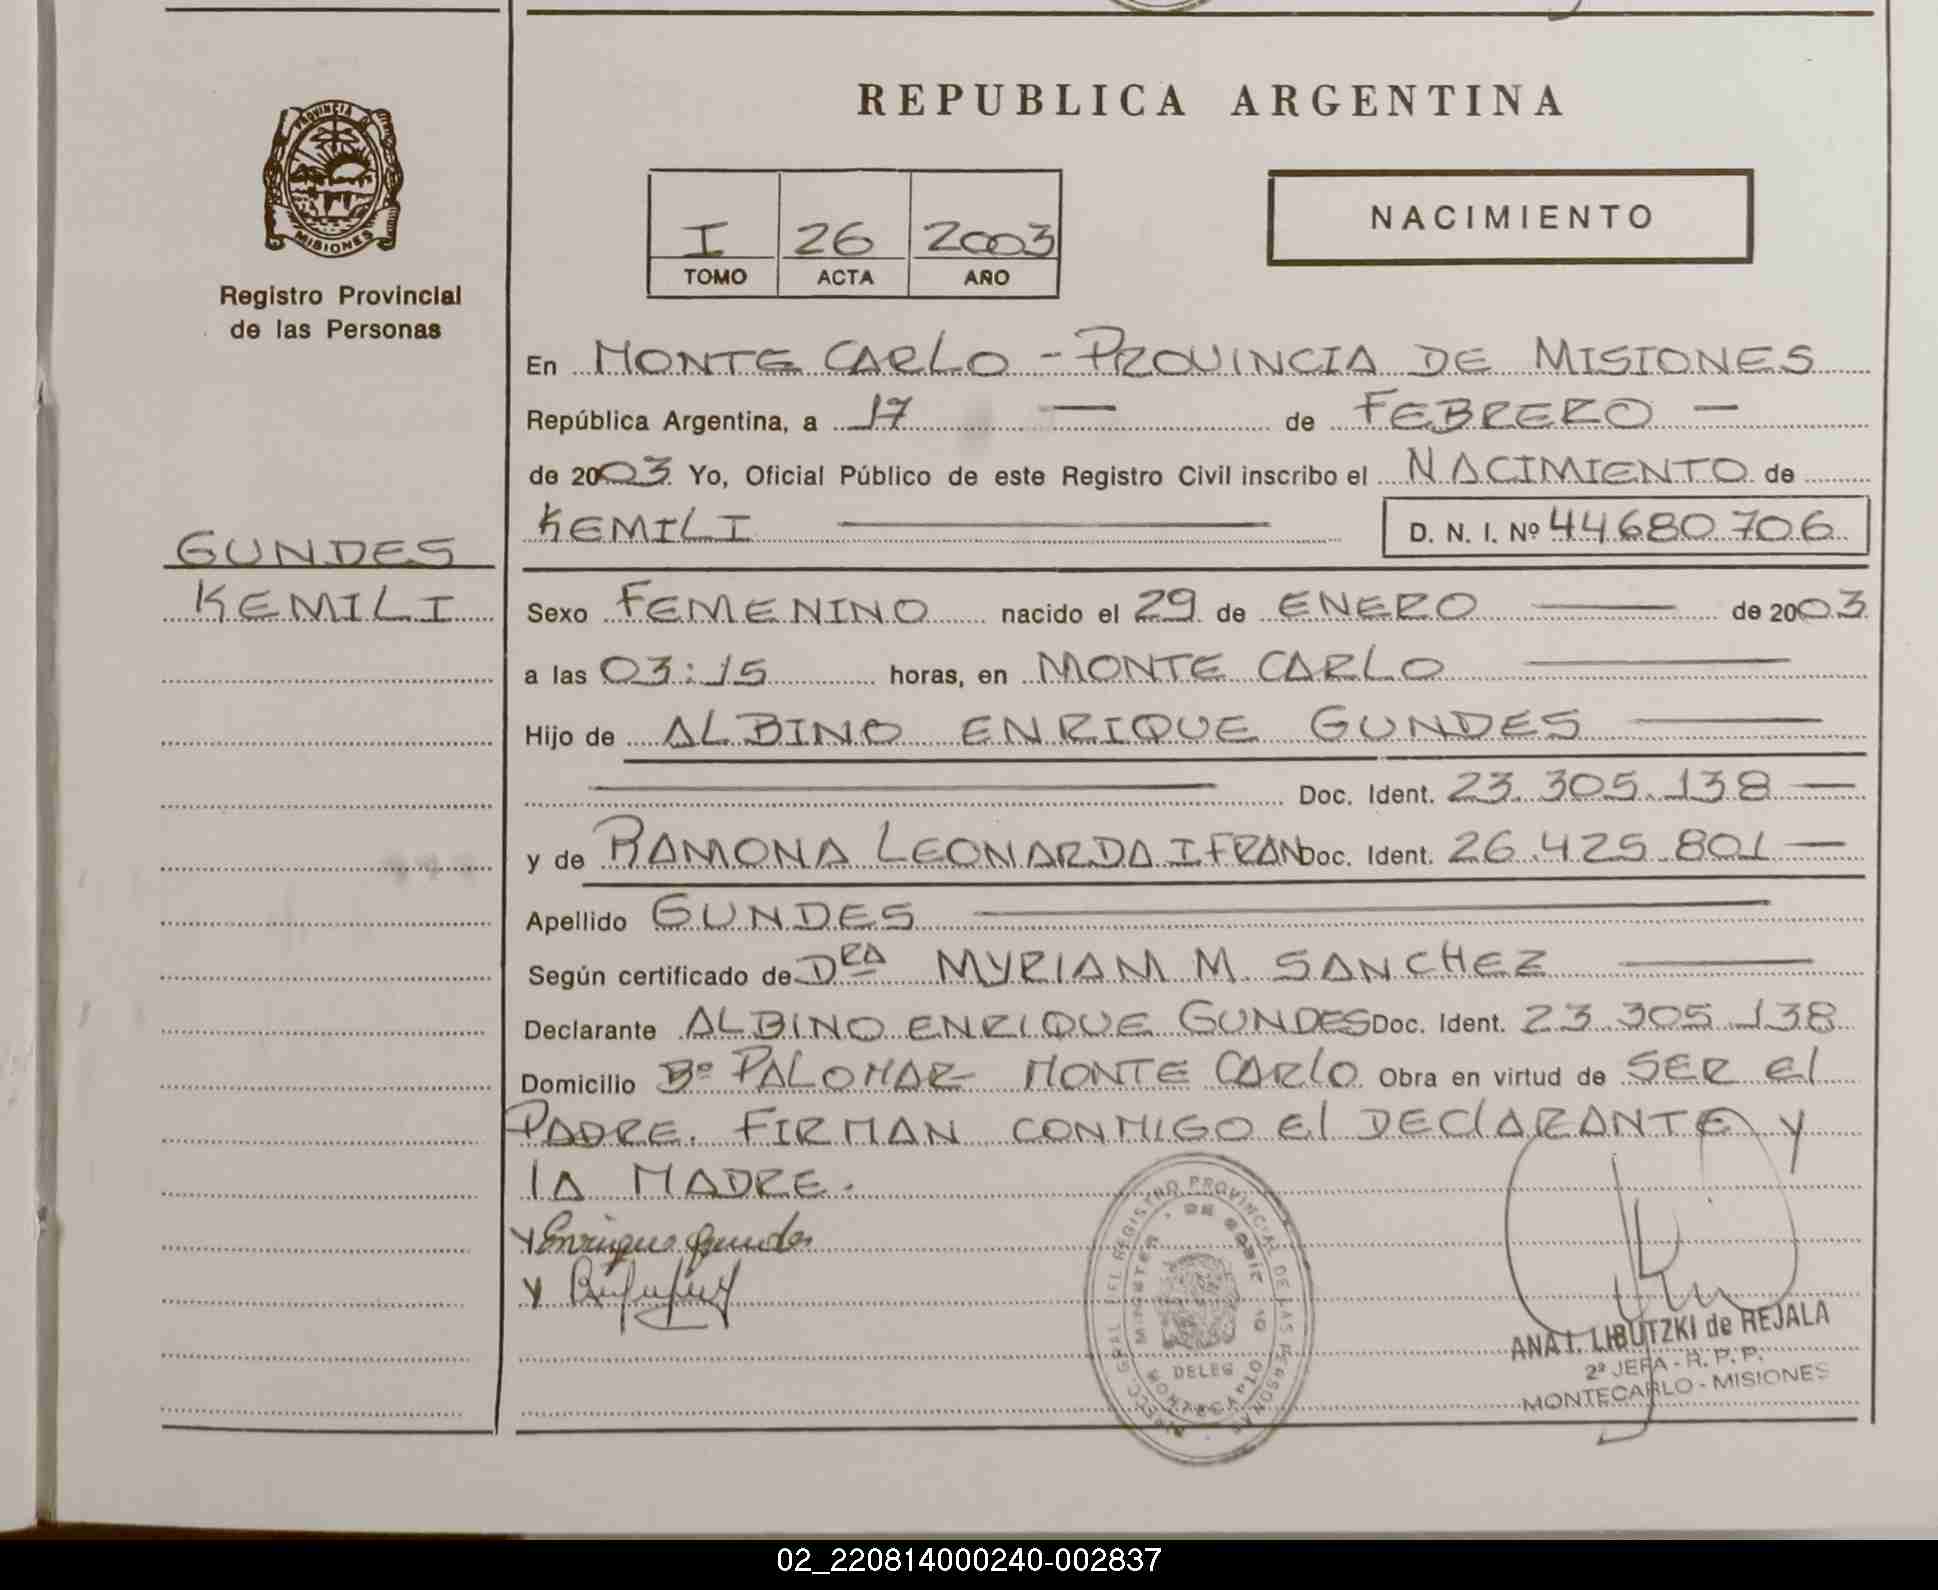 REPUBLICA ARGENTINA
PROVINCIA DE
MISIONES
Registro Provincial
de las Personas
GUNDES
KEMILI
I 26 2003
TOMO ACTA AÑO
NACIMIENTO
En MONTE CARLO - PROVINCIA DE MISIONES
República Argentina, a 17 — de FEBRERO —
de 2003 Yo, Oficial Público de este Registro Civil inscribo el NACIMIENTO de
KEMILI — D. N. I. Nº 44680706
Sexo FEMENINO nacido el 29 de ENERO — de 2003
a las 03:15 horas, en MONTE CARLO —
Hijo de ALBINO ENRIQUE GUNDES —
— Doc. Ident. 23.305.138 —
y de RAMONA LEONARDA IFRAN Doc. Ident. 26.425.801 —
Apellido GUNDES —
Según certificado de DRA MYRIAM M. SANCHEZ —
Declarante ALBINO ENRIQUE GUNDES Doc. Ident. 23.305.138
Domicilio Bº PALOMAR MONTE CARLO Obra en virtud de SER El
PADRE. FIRMAN CONMIGO El DEClARANTE y
lA MADRE.
Enrique Gundes
DIRECC. GRAL DEL REGISTRO PROVINCIAL DE LAS PERSONAS
MINISTERIO DE GOBIERNO
DELEG
MONTECARLO
ANA I. LIBUTZKI de REJALA
2ª JEFA - R. P. P.
MONTECARLO - MISIONES
02_220814000240-002837